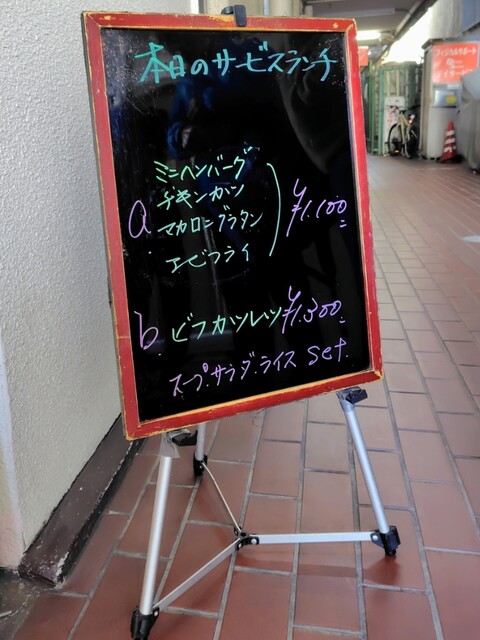 本日のサービスランチ
a
ミニハンバーグ
チキンカツ
マカロニグラタン
エビフライ
¥1.100
b ビフカツレツ ¥1.300
スープ.サラダ.ライス set
フィジカルサポート